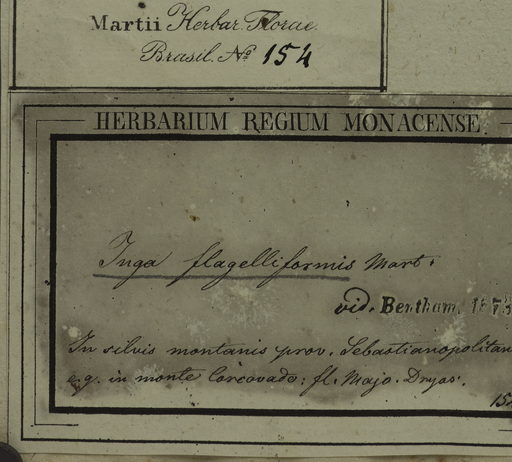 Martii Herbar. Florae
Brasil. No 154
HERBARIUM REGIUM MONACENSE.
Inga flagelliformis Mart.
vid. Bentham.
In silvis montanis prov. Sebastianopolitan
e.g. in monte Corcovado: fl. Majo. Dryas.